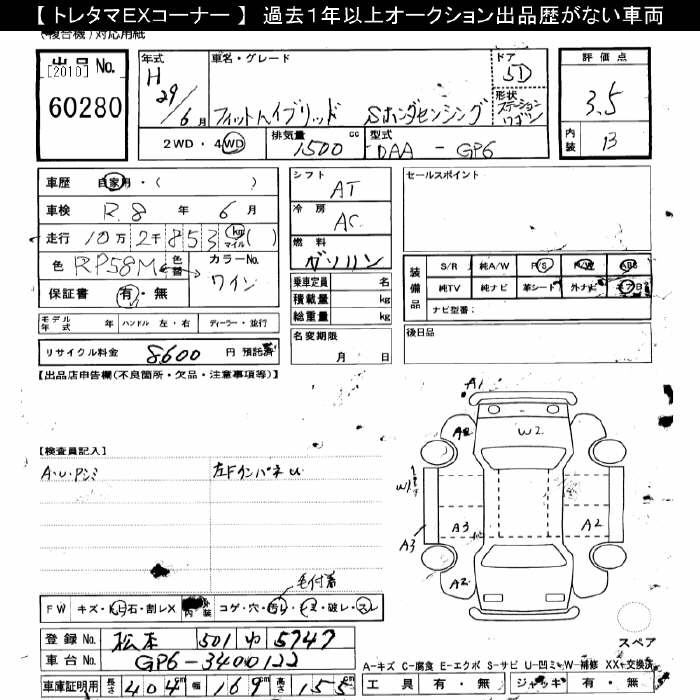 【 トレタマEXコーナー 】 過去1年以上オークション出品歴がない車両
(複合機)対応用紙
出品 No.
[2010]
60280
年式
H 29/6 月
車名・グレード
フィットハイブリッド Sホンダセンシング
ドア
5D
形状
ステーションワゴン
2WD・4WD
排気量
1500 cc
型式
DAA - GP6
評価点
3.5
内装
B
車歴 自家用・( )
車検 R.8 年 6 月
走行 10万 2千 853 km マイル ( )
色 RP58M 色替
カラーNo.
ワイン
保証書 有・無
モデル年式 年 ハンドル 左・右 ディーラー・並行
リサイクル料金 8600 円 預託済
シフト
AT
冷房
AC
燃料
ガソリン
乗車定員 名
積載量 kg
総重量 kg
名変期限
月 日
セールスポイント
装備品
S/R 純A/W P/S P/W ABS
純TV 純ナビ 革シート 外ナビ エアB
ナビ型番:
後日品
【出品店申告欄(不良箇所・欠品・注意事項等)】
【検査員記入】
A.U.Pンミ
左Fインパネ u
毛付着
A1
A2
W2
W1
A3
A3
A2
A2
スペア
FW キズ・飛石・割レX 内装 コゲ・穴・汚レ・キズ・破レ・スレ
登録 No. 松本 501 ゆ 5747
車台 No. GP6-3400122
車庫証明用 長さ 404 cm 幅 169 cm 高さ 155 cm
A-キズ C-腐食 E-エクボ S-サビ U-凹ミ W-補修 XX-交換済
工具 有・無 ジャッキ 有・無